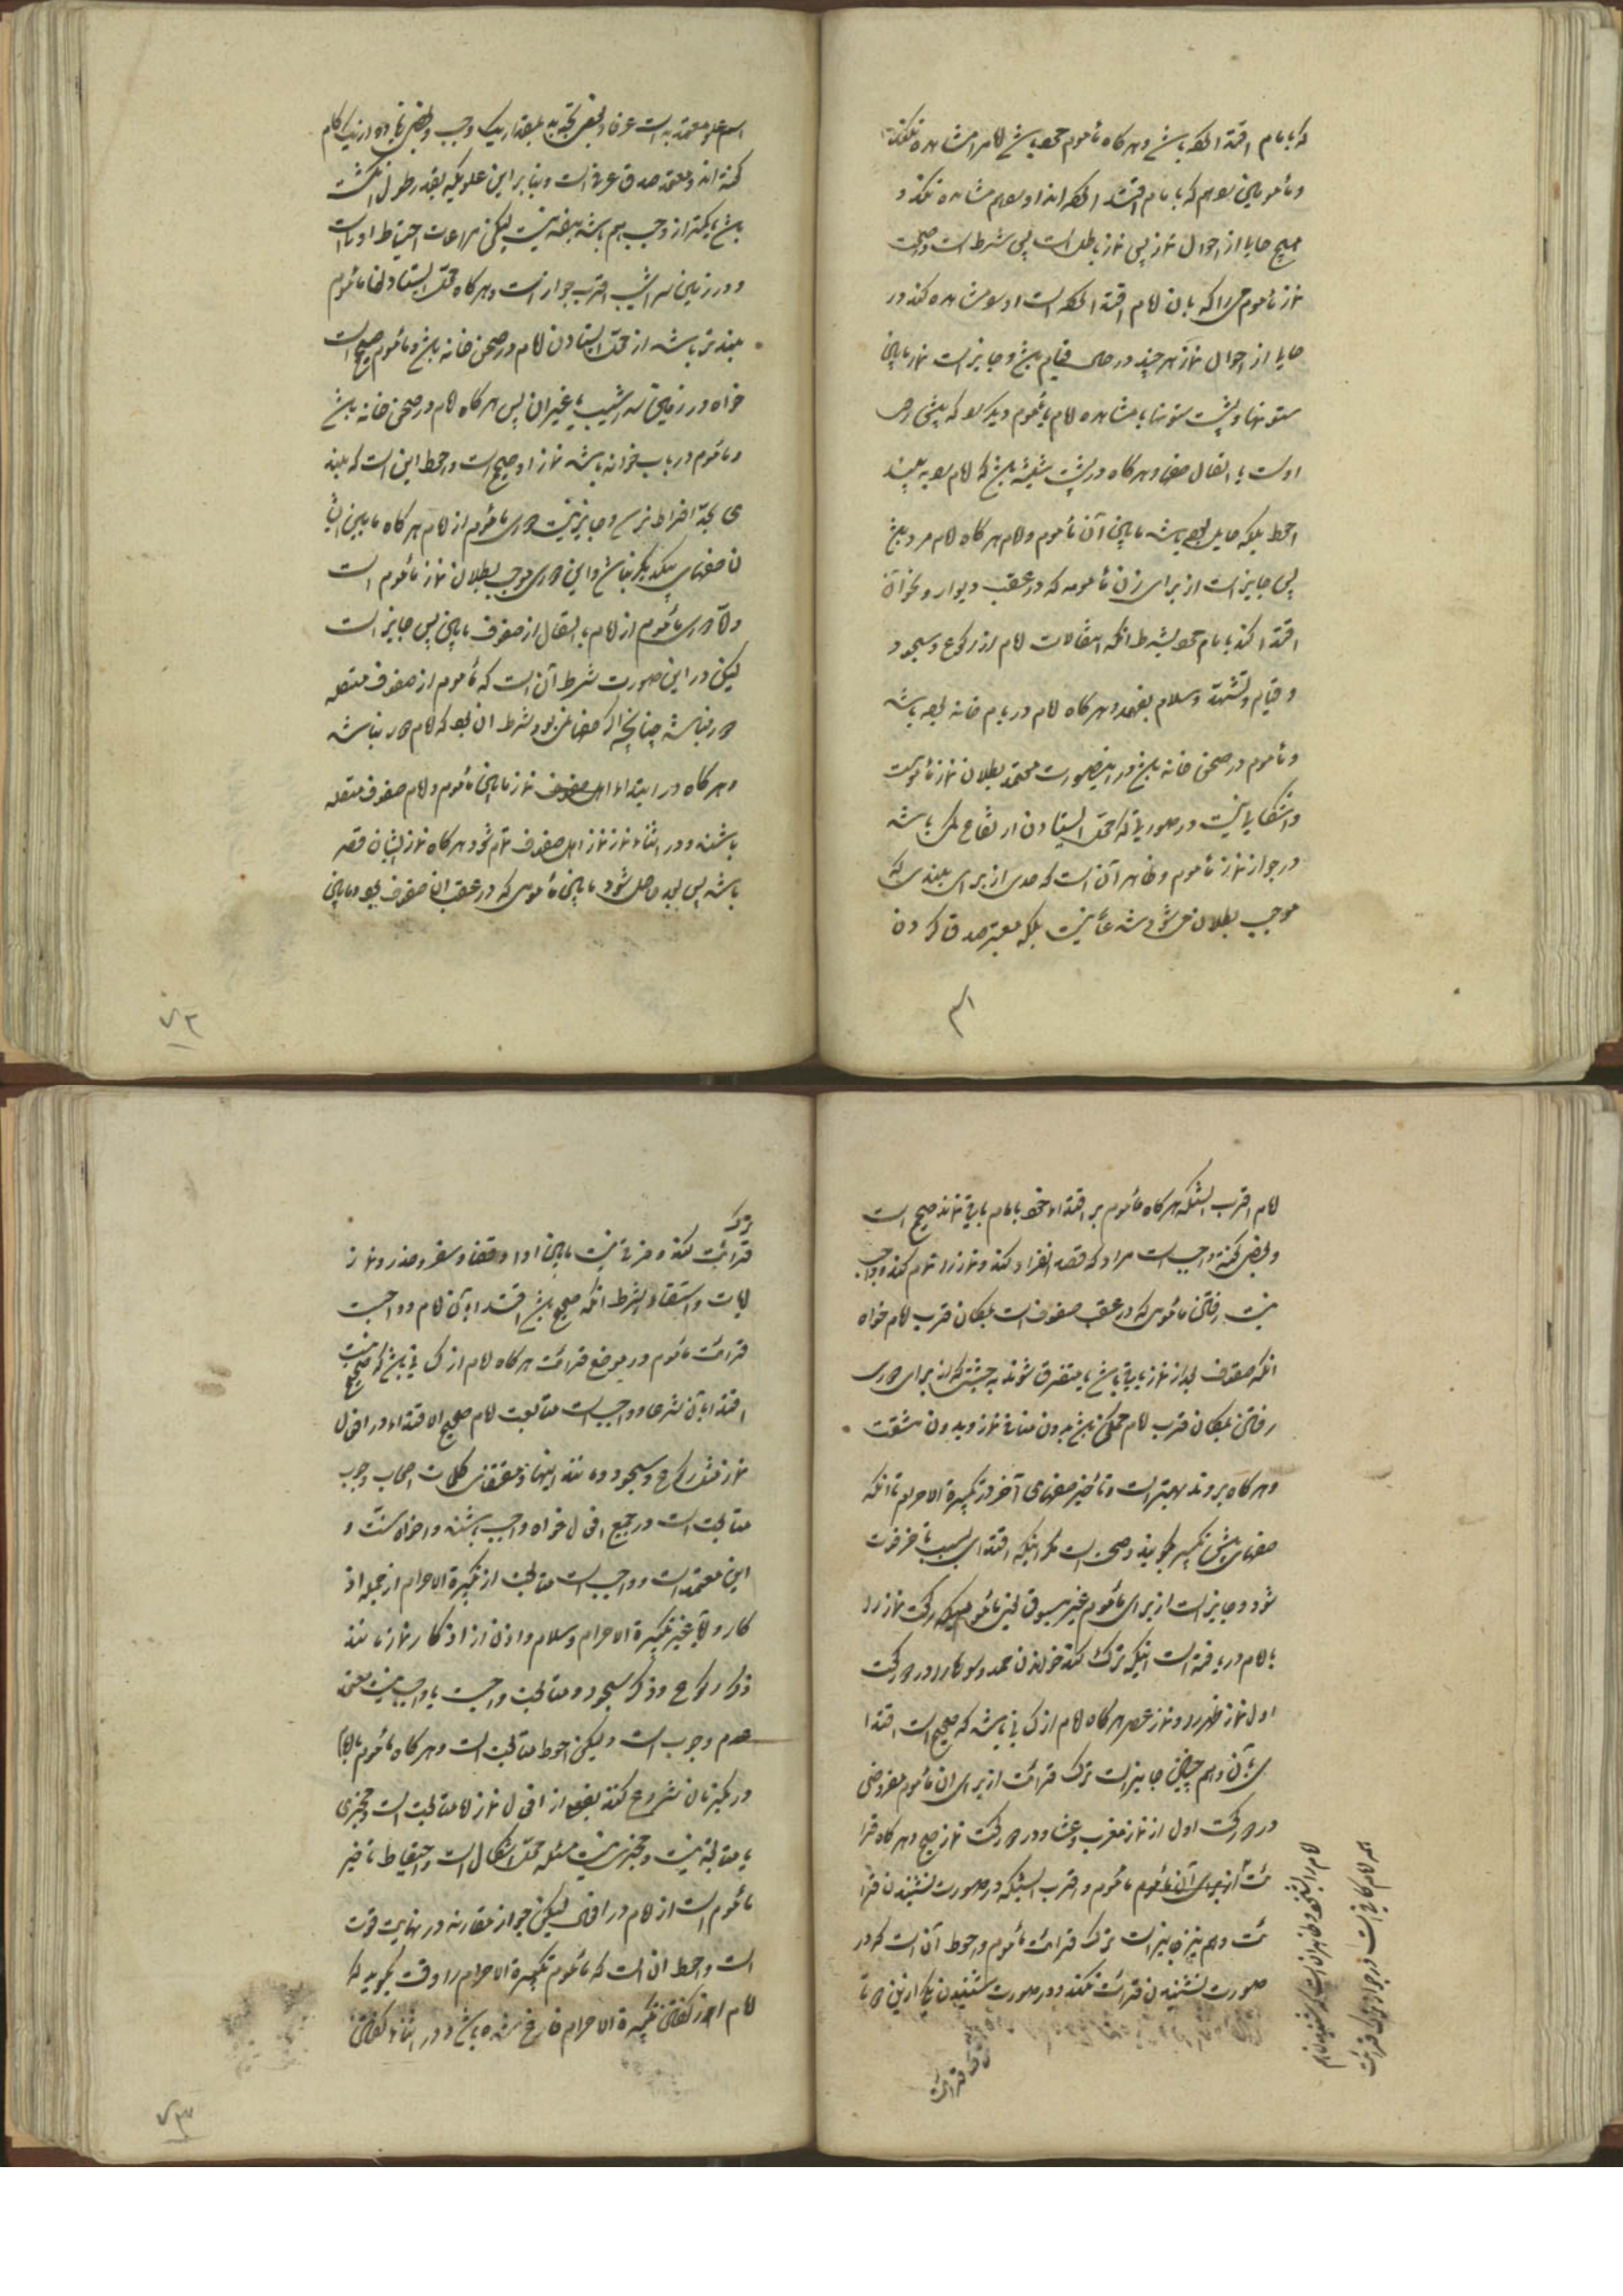 که بامام اقتدا کرده باشد و هرگاه مأموم خود باشد امام را مشاهده نکند
و مأمومین هم که بامام اقتدا کرده اند او را هم مشاهده نکند در
هیچ حالی از احوال نماز پس نماز باطل است پس شرط است در صحت
نماز مأموم مرد که بان امام اقتدا کرده است او را مشاهده کند در
حالی از احوال نماز هر چند در حال قیام باشد و جایز است نماز مابین
ستونها و پشت ستونها با مشاهده امام یا مأموم دیگر را که پیش روی
اوست با اتصال صفها و هرگاه در پشت شیشه باشد که امام را به بیند
احوط بلکه حایل بوده باشد مابین آن مأموم و امام هرگاه امام مرد باشد
پس جایز است از برای زن مأمومه که در عقب دیوار و نحو آن
اقتدا کند بامام خود بشرط آنکه انتقالات امام را از رکوع و سجود
و قیام و تشهد و سلام بفهمد و هرگاه امام در بام خانه بوده باشد
و مأموم در صحن خانه باشد در اینصورت معتمد بطلان نماز مأموم است
و اشکالی نیست در صورتی که محل ایستادن ارتفاع باشد
در جواز نماز مأموم و ظاهر آنست که حدی از برای بلندی که
موجب بطلان میشود شرعا نیست بلکه معتبر صدق کردن
اسم علو معتد به است عرفا و بعضی بمقدار یک وجب و بعضی زیاده از یک گام
گفته اند و معتمد صدق عرفی است و بنابراین علویکه بقدر طول انگشت
باشد یا کمتر از وجب هم باشد مضر نیست لیکن مراعات احتیاط اولی است
و در زمین سراشیب اقرب جواز است و هرگاه محل ایستادنها مأموم
بلند تر باشد از محل ایستادن امام در صحن خانه باشد و مأموم صحیح است
خواه در زمین سراشیب یا غیر آن پس هرگاه امام در صحن خانه باشد
و مأموم در بام خانه باشد نماز او صحیح است و احوط این است که بلند
ی بحد افراط نرسد و جایز نیست دوری مأموم از امام هرگاه مابین ایشا
ن صفهای یکدیگر نباشد و این دوری موجب بطلان نماز مأموم است
و اما دوری مأموم از امام با اتصال از صفوف مابین پس جایز است
لیکن در این صورت شرط آن است که مأموم از صفوف متصله
دور نباشد چنانچه اگر صفها نبود شرط آن بود که امام دور نباشد
و هرگاه در ابتداء اهل صفوف نماز مابین مأموم و امام صفوف متصله
باشند و در اثناء نماز نماز اهل صفوف تمام شود هرگاه نماز ایشان قصر
باشد پس بعد حاصل شود مابین مأمومی که در عقب آن صفوف بود و مابین
۷۲
امام اقرب اینکه هرگاه مأموم بر اقتداء خود بامام باقی ماند صحیح است
و بعضی گفته واجب است مر او را که قصد انفراد کند و نماز را تمام کند و واجب
نیست رفتن مأمومی که در عقب صفوف است بمکان قرب امام خواه
آنکه صفوف بعد از نماز باقی باشد یا متفرق شوند به حیثیتی که از برای دوری
رفتن بمکان قرب امام ممکن باشد بدون منافی نماز و بدون مشقت
و هرگاه بروند بهتر است و تأخیر صفهای آخر در تکبیرة الاحرام تا آنکه
صفهای پیش تکبیر بگویند واجب است مگر اینکه اقتدا بسبب تأخیر فوت
شود و جایز است از برای مأموم غیر مسبوق یعنی مأمومیکه رکعت نماز را
با امام دریافته است اینکه ترک کند خواندن حمد و سوره را در دو رکعت
اول نماز ظهر و نماز عصر هرگاه امام از کسانی باشد که صحیح است اقتدا
ی بآن و هم چنین جایز است ترک قرائت از برای آن مأموم مفروض
در دو رکعت اول از نماز مغرب و عشا و در دو رکعت نماز صبح و هرگاه قرا
ئت از برای آن مأموم مأموم و اقرب اینکه در صورت نشنیدن قرا
ئت و هم نیز جایز است ترک قرائت مأموم و احوط آن است که در
صورت نشنیدن قرائت نکند و در صورت شنیدن
ترک
قرائت نکند و فرقی نیست مابین ادا و قضا و سفر و حضر و نماز
آیات و استسقا بشرط آنکه صحیح باشد اقتدا بآن امام و واجب
قرائت مأموم در موضع قرائت هرگاه امام از کسانی باشد که صحیح نیست
اقتدا بآن شرعا و واجب است متابعت امام صحیح الاقتداء در افعال
نماز مثل رکوع و سجود و مانند اینها و مقتضای کلمات اصحاب وجوب
متابعت است در جمیع افعال خواه واجب باشند و خواه سنت و
این معتمد است و واجب است متابعت از تکبیرة الاحرام از جمله اذ
کار و اما غیر تکبیرة الاحرام و سلام و اذن از اذکار نماز مانند
ذکر رکوع و ذکر سجود و متابعت واجب یا واجب نیست معتمد
عدم وجوب است و لیکن احوط متابعت است و هرگاه مأموم با امام
در یکزمان شروع کنند بفعلی از افعال نماز اما متابعت است و مجزی
یا متابعة نیست و مجزی نیست مسئله محل اشکال است و احتیاط تأخیر
مأموم است از امام در افعال لیکن جواز مقارنه در نهایت قوت
است و احوط آن است که مأموم تکبیرة الاحرام را وقت بگوید که
امام از گفتن تکبیرة الاحرام فارغ شده باشد و در اثناء گفتن
۷۳